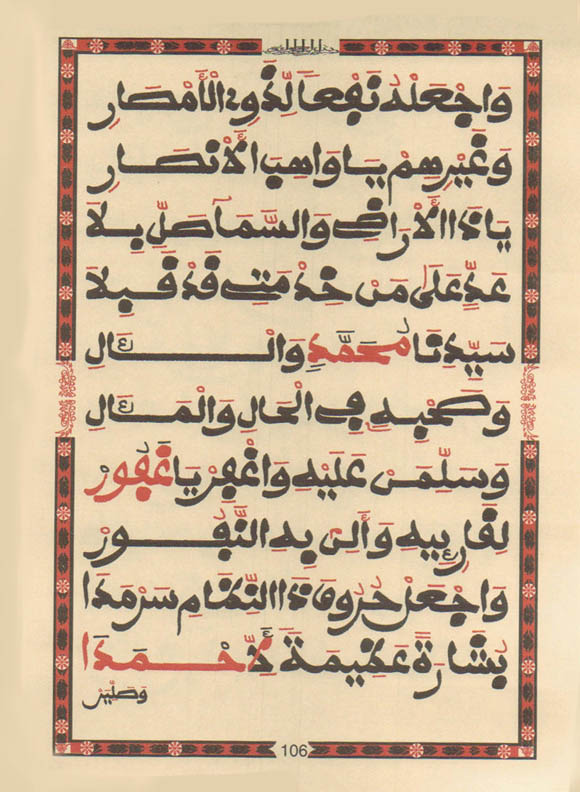 وَاجْعَلْهُ نَفْعاً لِّذَوِي الْأَمْصَارِ
وَغَيْرِهِمْ يَا وَاهِبَ الْأَنْصَارِ
يَا ذَا الْأَرَاضِي وَالسَّمَا صَلِّ بِلَا
عَدٍّ عَلَى مَنْ خِدْمَتِي قَدْ قَبِلَا
سَيِّدِنَا مُحَمَّدٍ وَالْآلِ
وَصَحْبِهِ فِي الْحَالِ وَالْمَآلِ
وَسَلِّمَنْ عَلَيْهِ وَاغْفِرْ يَا غَفُورْ
لِقَارِئِيهِ وَأَلِنْ بِهِ النَّفُورْ
وَاجْعَلْ حُرُوفَ ذَا النِّظَامِ سَرْمَدَا
بِشَارَةً عَظِيمَةً لِّأَحْمَدَا
وَصَيِّرْ
106